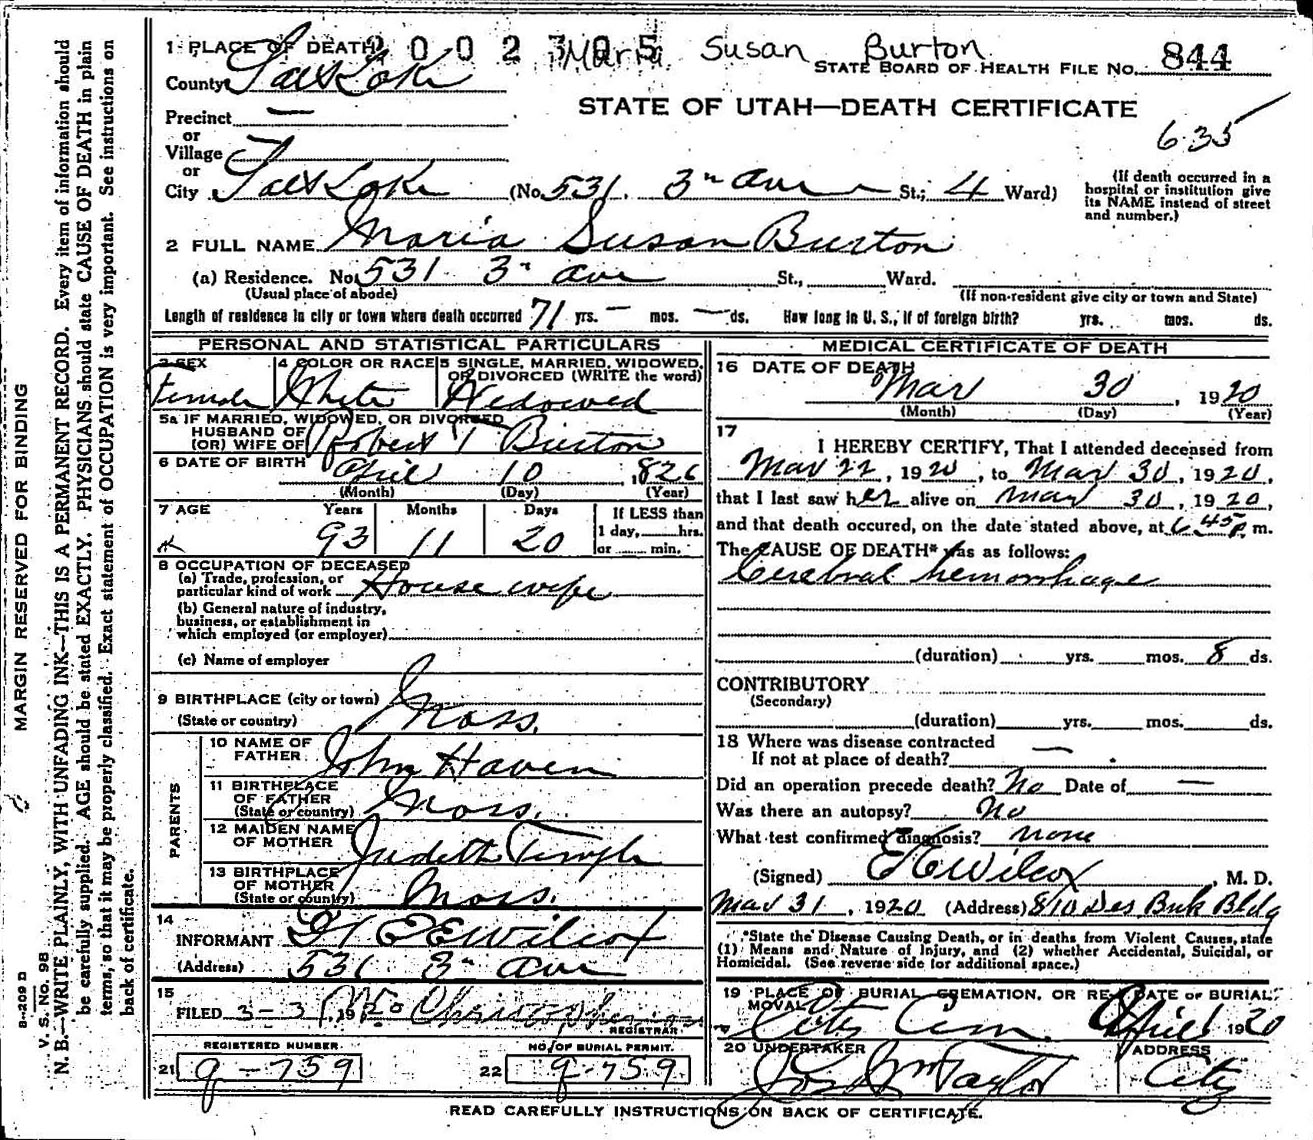 2002705 Maria Susan Burton
1 PLACE OF DEATH
STATE BOARD OF HEALTH FILE NO. 844
County Salt Lake
STATE OF UTAH—DEATH CERTIFICATE
Precinct —
635
or
Village
or
City Salt Lake (No. 531. 3rd ave St.; 4 Ward)
(If death occurred in a hospital or institution give its NAME instead of street and number.)
2 FULL NAME Maria Susan Burton
(a) Residence. No. 531 3rd ave St., Ward.
(Usual place of abode) (If non-resident give city or town and State)
Length of residence in city or town where death occurred 71 yrs. — mos. — ds. How long in U. S., if of foreign birth? yrs. mos. ds.
PERSONAL AND STATISTICAL PARTICULARS
3 SEX Female
4 COLOR OR RACE White
5 SINGLE, MARRIED, WIDOWED, OR DIVORCED (WRITE the word) Widowed
5a IF MARRIED, WIDOWED, OR DIVORCED
HUSBAND OF
(OR) WIFE OF Robert T Burton
6 DATE OF BIRTH April 10, 1826
(Month) (Day) (Year)
7 AGE Years Months Days If LESS than
93 11 20 1 day, hrs.
or min.
8 OCCUPATION OF DECEASED
(a) Trade, profession, or
particular kind of work House wife
(b) General nature of industry,
business, or establishment in
which employed (or employer)
(c) Name of employer
9 BIRTHPLACE (city or town)
(State or country) Mass.
PARENTS
10 NAME OF
FATHER John Haven
11 BIRTHPLACE
OF FATHER
(State or country) Mass.
12 MAIDEN NAME
OF MOTHER Judith Temple
13 BIRTHPLACE
OF MOTHER
(State or country) Mass.
14
INFORMANT E E Wilcox
(Address) 531 3rd ave
15
FILED 3-31 1920
REGISTRAR
REGISTERED NUMBER NO. OF BURIAL PERMIT.
21 g-759 22 g-759
MEDICAL CERTIFICATE OF DEATH
16 DATE OF DEATH
Mar 30, 1920
(Month) (Day) (Year)
17
I HEREBY CERTIFY, That I attended deceased from
Mar 22, 1920, to Mar 30, 1920,
that I last saw her alive on Mar 30, 1920,
and that death occured, on the date stated above, at 6 45 P. m.
The CAUSE OF DEATH* was as follows:
Cerebral hemorrhage
(duration) yrs. mos. 8 ds.
CONTRIBUTORY
(Secondary)
(duration) yrs. mos. ds.
18 Where was disease contracted
If not at place of death? —
Did an operation precede death? No Date of —
Was there an autopsy? No
What test confirmed diagnosis? none
(Signed) E E Wilcox, M. D.
Mar 31, 1920 (Address) 810 Des Bnk Bldg
*State the Disease Causing Death, or in deaths from Violent Causes, state
(1) Means and Nature of Injury, and (2) whether Accidental, Suicidal, or
Homicidal. (See reverse side for additional space.)
19 PLACE OF BURIAL, CREMATION, OR REMOVAL DATE OF BURIAL
City Cem. April 1 1920
20 UNDERTAKER ADDRESS
Jos Wm Taylor City
READ CAREFULLY INSTRUCTIONS ON BACK OF CERTIFICATE.
MARGIN RESERVED FOR BINDING
N. B.—WRITE PLAINLY, WITH UNFADING INK—THIS IS A PERMANENT RECORD. Every item of information should
be carefully supplied. AGE should be stated EXACTLY. PHYSICIANS should state CAUSE OF DEATH in plain
terms, so that it may be properly classified. Exact statement of OCCUPATION is very important. See instructions on
back of certificate.
V. S. No. 98